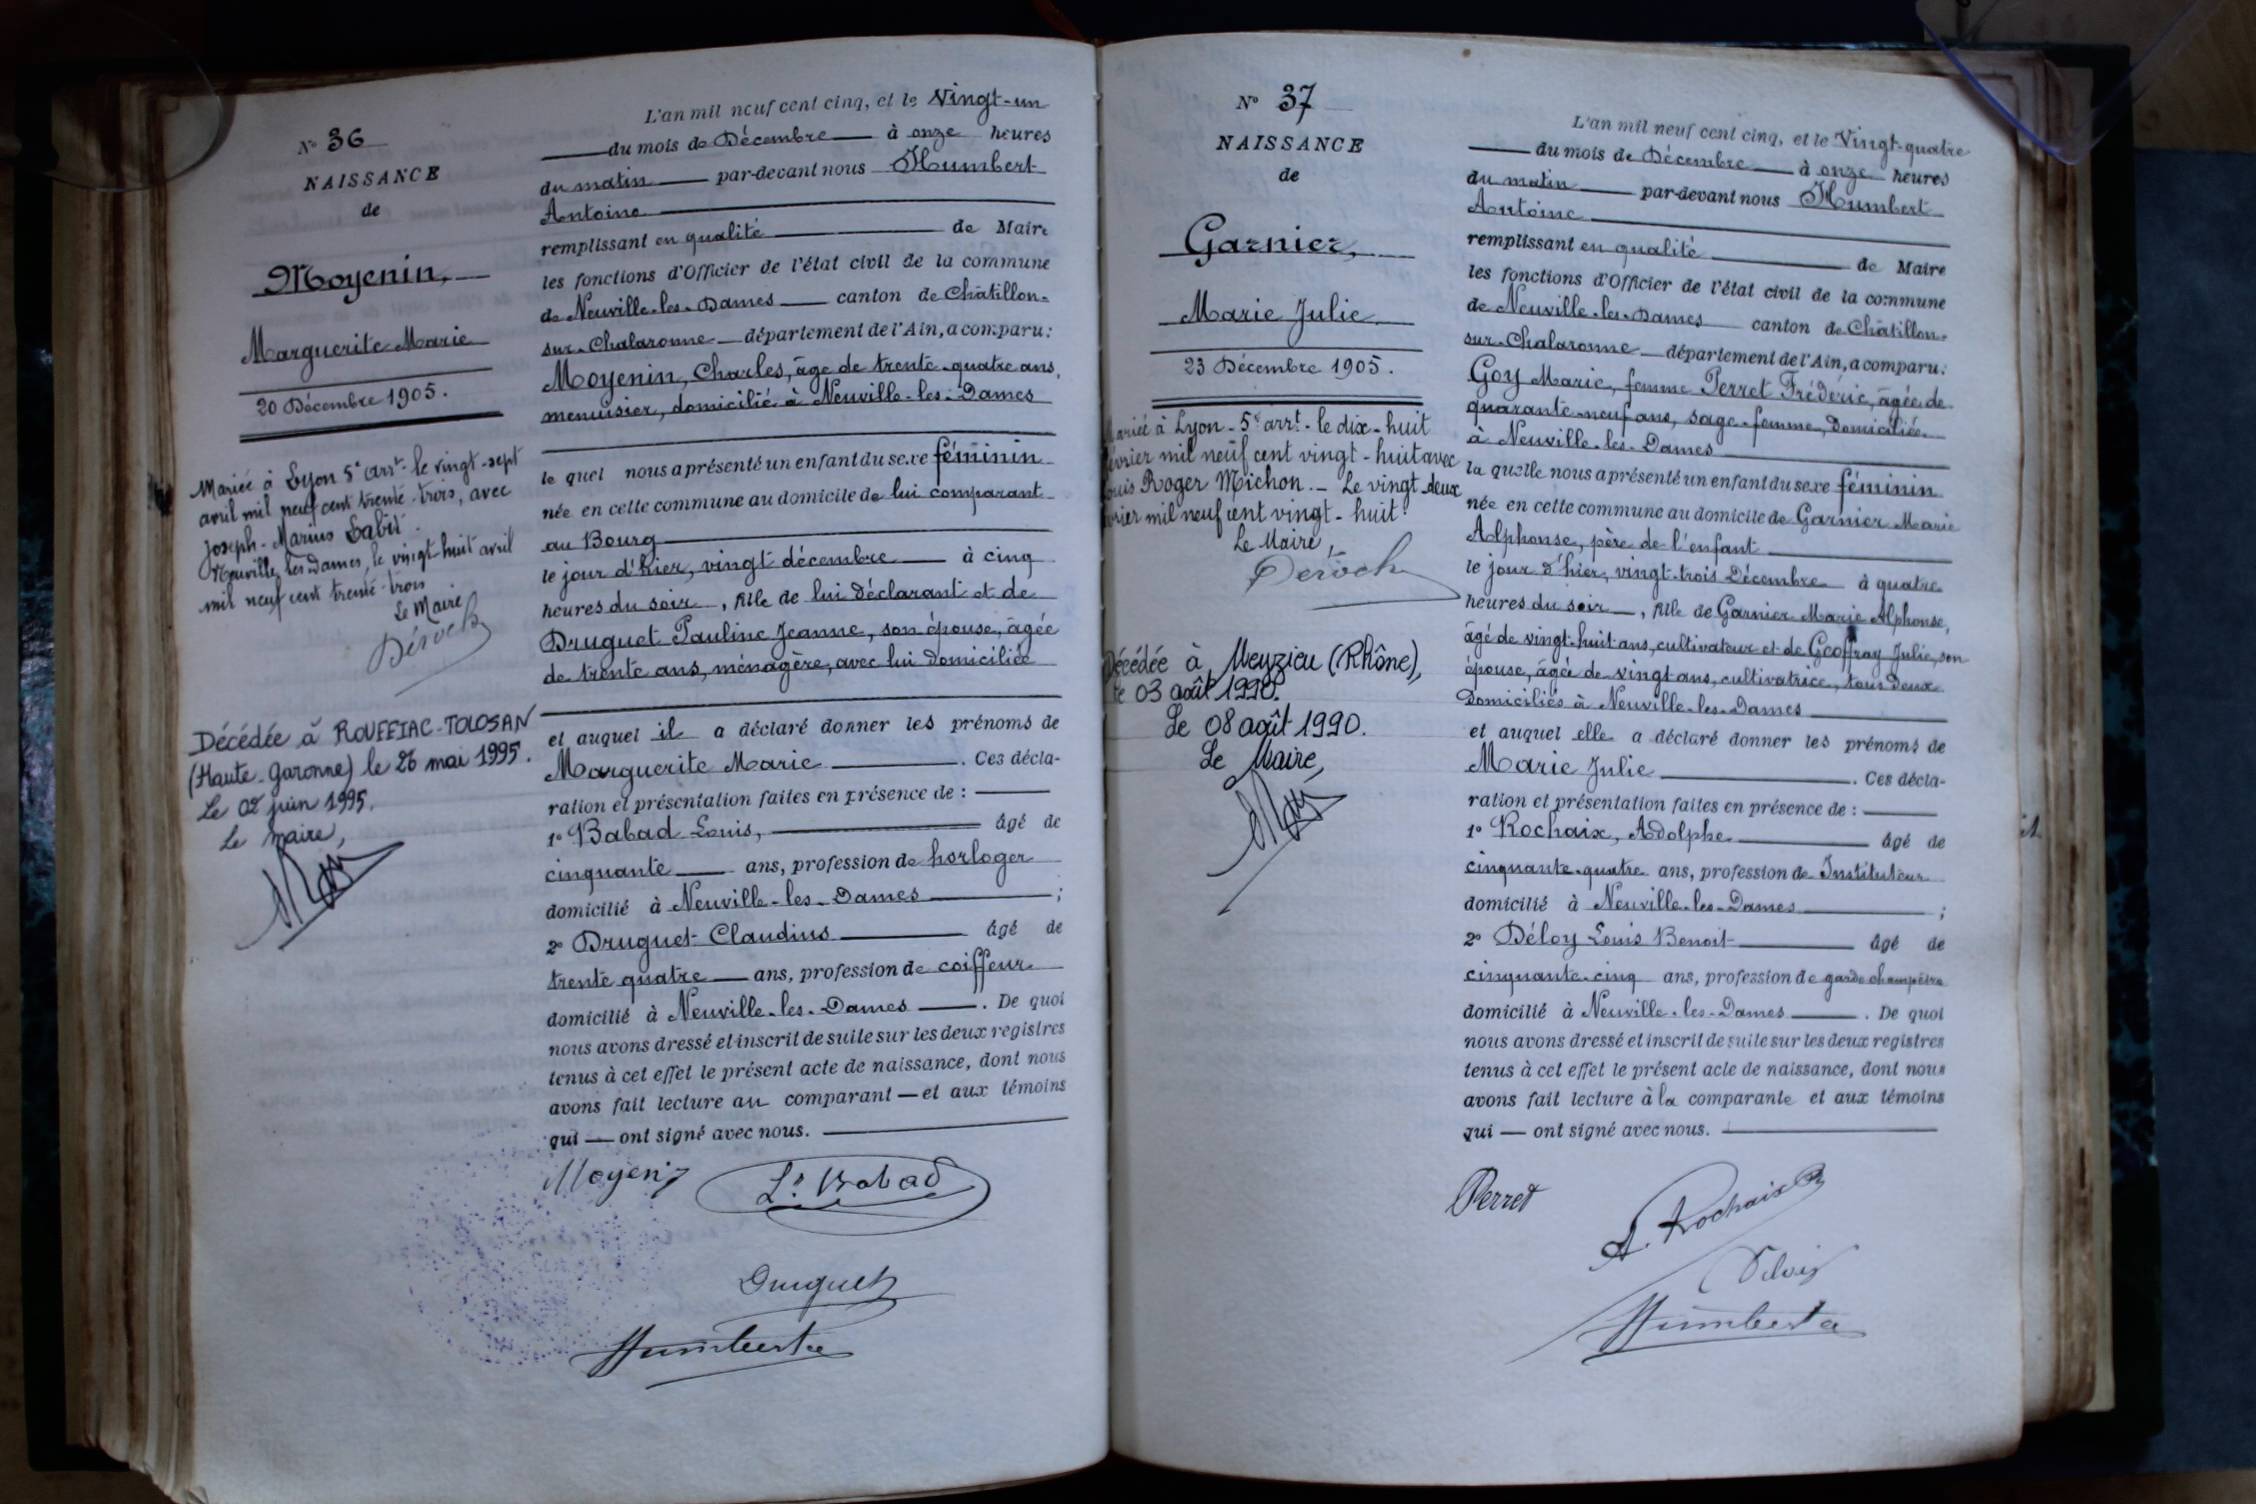 N° 36
NAISSANCE
de
Moyenin,
Marguerite Marie
20 Décembre 1905.
Mariée à Lyon 5e arrt le vingt-sept
avril mil neuf cent trente-trois, avec
Joseph-Marius
Neuville les Dames, le vingt huit avril
mil neuf cent trente-trois
Le Maire
Déroch
Décédée à ROUFFIAC-TOLOSAN
(Haute-Garonne) le 26 mai 1995.
Le 02 juin 1995.
Le maire,
L'an mil neuf cent cinq, et le Vingt-un
du mois de Décembre à onze heures
du matin par-devant nous Humbert
Antoine
remplissant en qualité de Maire
les fonctions d'Officier de l'état civil de la commune
de Neuville-les-Dames canton de Châtillon-
sur-Chalaronne département de l'Ain, a comparu:
Moyenin, Charles, âgé de trente-quatre ans,
menuisier, domicilié à Neuville-les-Dames
le quel nous a présenté un enfant du sexe féminin
née en cette commune au domicile de lui comparant
au Bourg
le jour d'hier, vingt décembre à cinq
heures du soir, fille de lui déclarant et de
Druguet Pauline Jeanne, son épouse, âgée
de trente ans, ménagère, avec lui domiciliée
et auquel il a déclaré donner les prénoms de
Marguerite Marie. Ces décla-
ration et présentation faites en présence de :
1° Babad Louis, âgé de
cinquante ans, profession de horloger
domicilié à Neuville-les-Dames ;
2° Druguet Claudius âgé de
trente quatre ans, profession de coiffeur
domicilié à Neuville-les-Dames. De quoi
nous avons dressé et inscrit de suite sur les deux registres
tenus à cet effet le présent acte de naissance, dont nous
avons fait lecture au comparant — et aux témoins
qui — ont signé avec nous.
Moyenin L. Babad
Druguet
Humbert
N° 37
NAISSANCE
de
Garnier,
Marie Julie
23 Décembre 1905.
Mariée à Lyon-5e arrt-le dix-huit
février mil neuf cent vingt-huit avec
Louis Roger Michon.- Le vingt-deux
février mil neuf cent vingt-huit.
Le Maire,
Deroch
Décédée à Meyzieu (Rhône),
le 03 août 1990.
Le 08 août 1990.
Le Maire,
L'an mil neuf cent cinq, et le Vingt-quatre
du mois de Décembre à onze heures
du matin par-devant nous Humbert
Antoine
remplissant en qualité de Maire
les fonctions d'Officier de l'état civil de la commune
de Neuville-les-Dames canton de Châtillon-
sur-Chalaronne département de l'Ain, a comparu:
Goy Marie, femme Perret Frédéric, âgée de
quarante-neuf ans, sage-femme, domiciliée
à Neuville-les-Dames
la quelle nous a présenté un enfant du sexe féminin
née en cette commune au domicile de Garnier Marie
Alphonse, père de l'enfant
le jour d'hier, vingt-trois Décembre à quatre
heures du soir, fille de Garnier Marie Alphonse,
âgé de vingt-huit ans, cultivateur et de Geoffray Julie, son
épouse, âgée de vingt ans, cultivatrice, tous deux
Domiciliés à Neuville-les-Dames
et auquel elle a déclaré donner les prénoms de
Marie Julie. Ces décla-
ration et présentation faites en présence de :
1° Rochaix, Adolphe âgé de
cinquante-quatre ans, profession de Instituteur
domicilié à Neuville-les-Dames ;
2° Déloy Louis Benoit âgé de
cinquante-cinq ans, profession de garde champêtre
domicilié à Neuville-les-Dames. De quoi
nous avons dressé et inscrit de suite sur les deux registres
tenus à cet effet le présent acte de naissance, dont nous
avons fait lecture à la comparante et aux témoins
qui — ont signé avec nous.
Perret A. Rochaix
Humbert